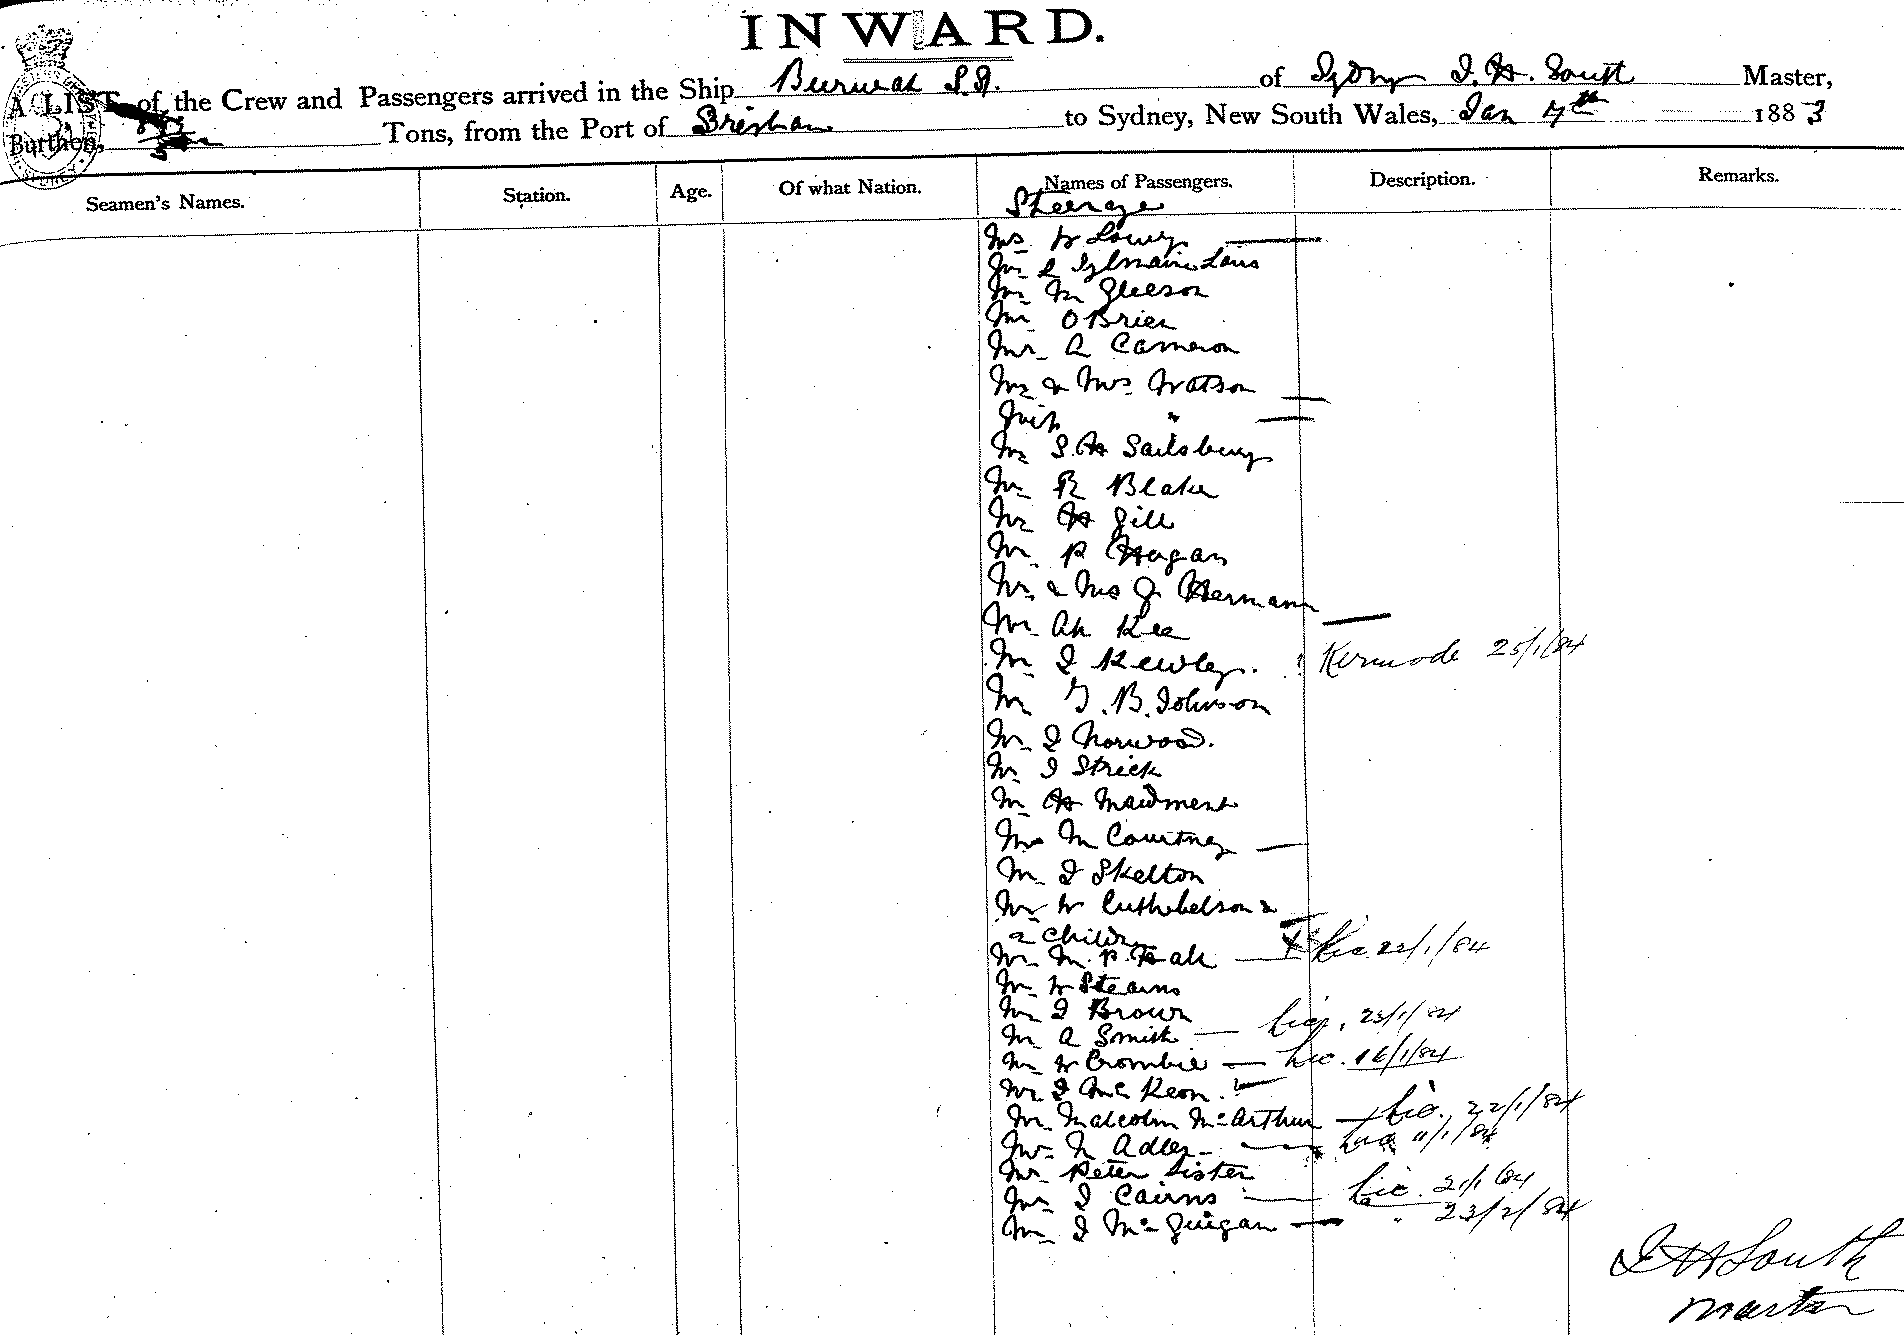 INWARD.
A LIST of the Crew and Passengers arrived in the Ship Burwah S.S. of Sydney J. H. South Master,
Burthen, Tons, from the Port of Brisbane to Sydney, New South Wales, Jan 4th 1883
Seamen's Names. Station. Age. Of what Nation. Names of Passengers. Description. Remarks.
Steerage
W Lowry
Mr
Mr M Gleeson
Mr O Brien
Mr A Cameron
Mr & Mrs Watson
"
Mr S. H Sailsbury
Mr R Blake
Mr H Gill
Mr P Hagan
Mr & Mrs J Hermann
Mr Ah Kee
Mr J Kewley. Kermode 25/1/84
Mr G. B. Johnson
Mr J Norwood.
Mr J Strick
Mr H Maidment
M Courtney
Mr J Skelton
W Cuthbelson &
2 Children
Mr M. P. Hale Lic 22/1/84
Mr W Stearns
Mr J Brown
Mr A Smith Lic. 23/1/84
Mr W Crombie Lic. 16/1/84
Mr J McKeon.
Mr Malcolm McArthur Lic. 22/1/84
Mr N Adler 11/1/84
Mr Peter Lister
Mr J Cairns Lic. 21/1/84
Mr J McGuigan " 23/2/84
J H South
Master